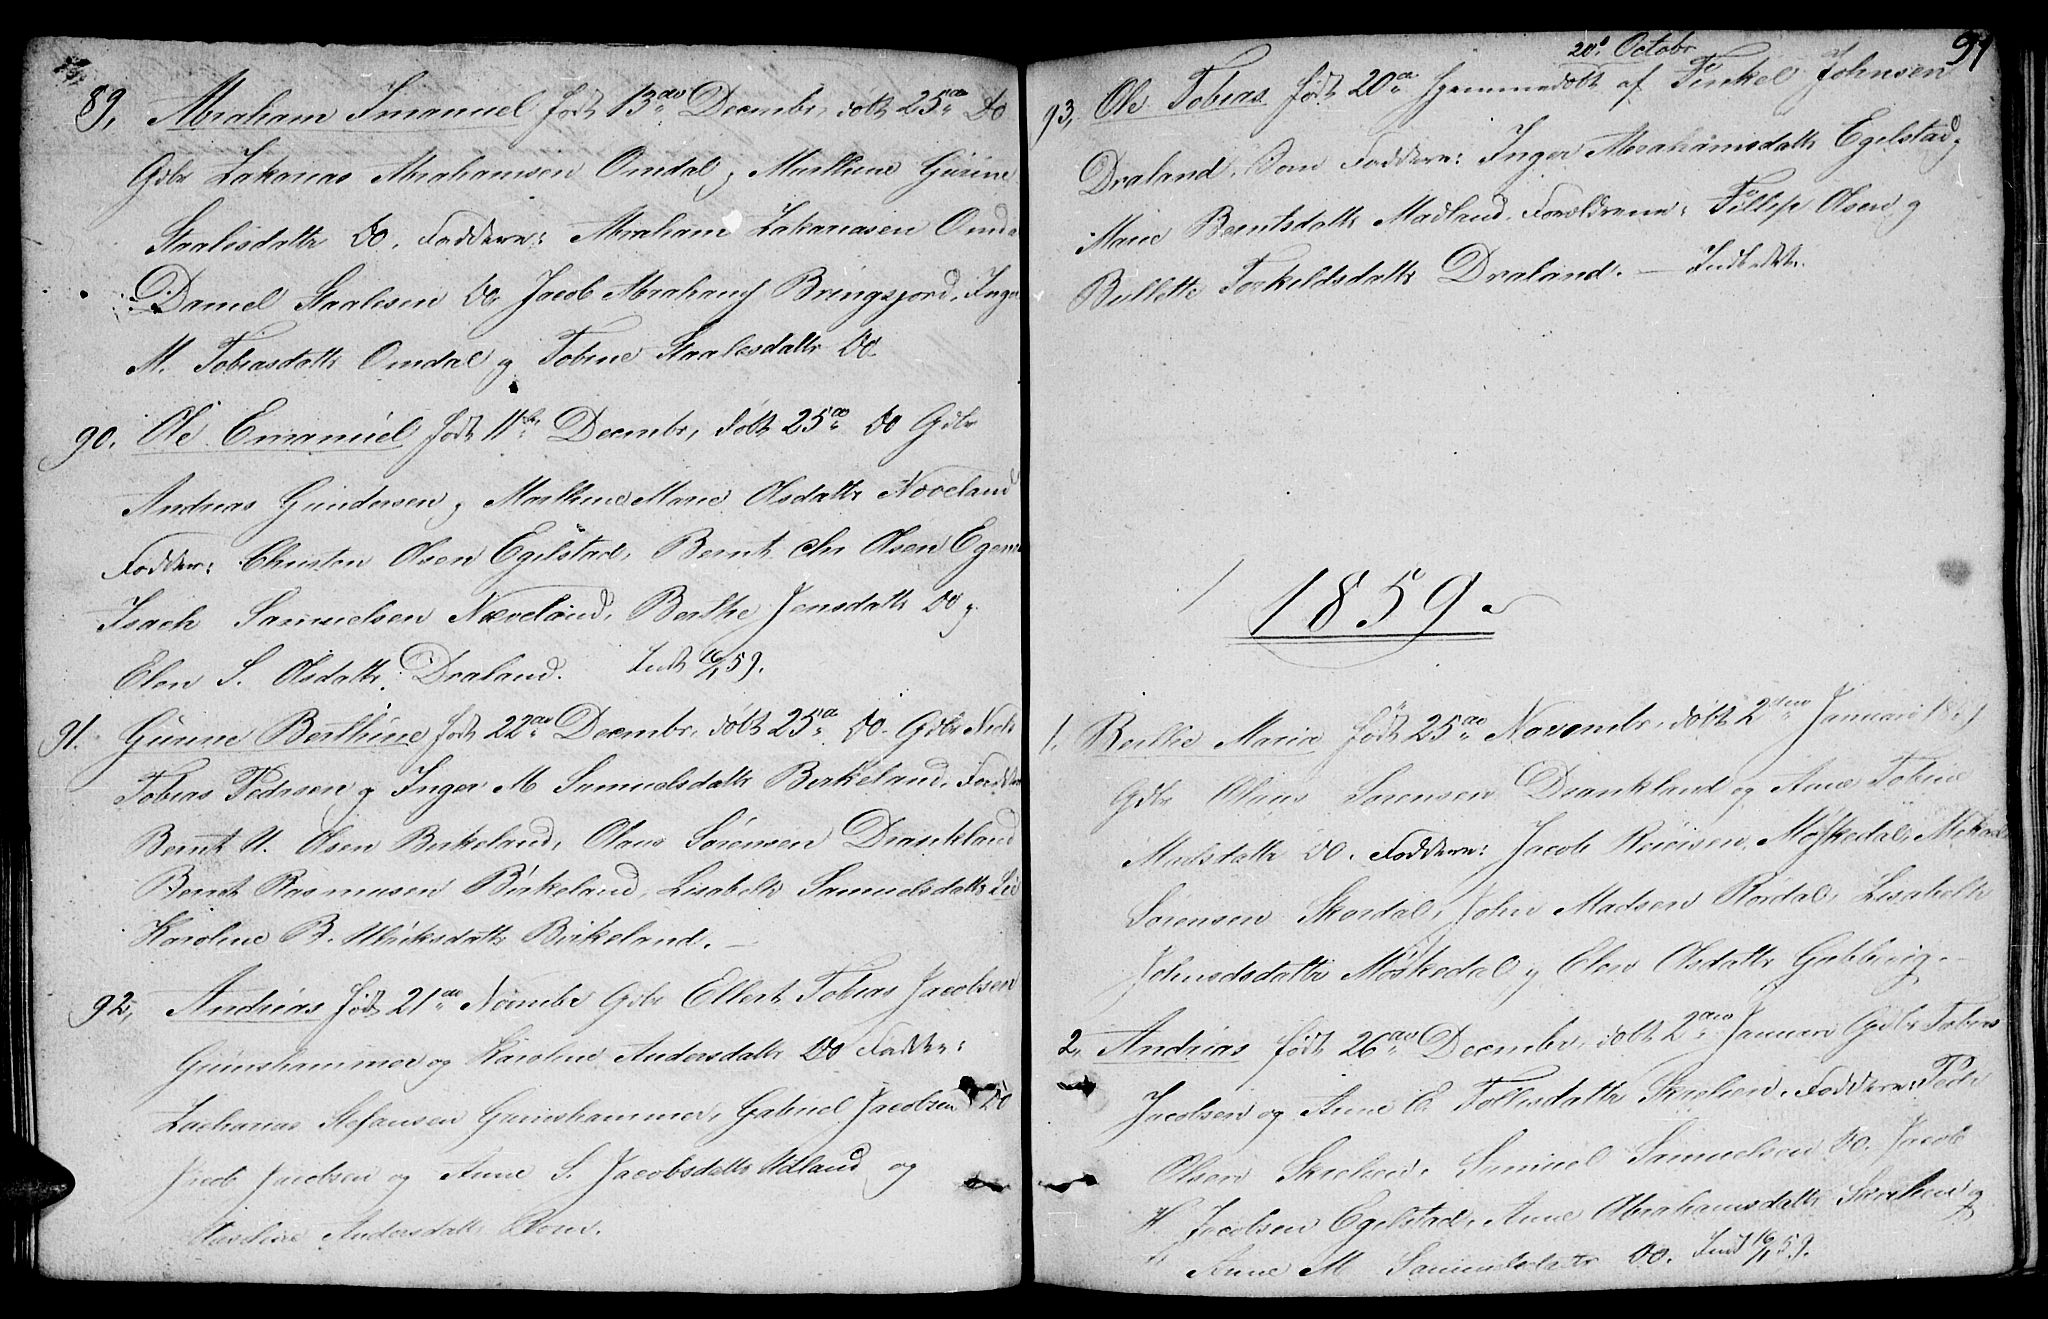 89, Abraham Imanuel født 13de Decembr, døbt 25de Do
Gdbr Zakarias Abrahamsen Omdal og Marthine Gurine
Staalesdattr Do. Faddere: Abraham Zakariasen Omd
Daniel Staalesen Do Jacob Abrahams Bringsjord, Inger
M. Tobiasdattr Omdal og Tobine Staalesdattr Do.
90. Ole Emanuel født 11te Decembr, døbt 25de Do Gdbr
Andreas Gundersen og Marthine Marie Olsdattr Næveland
Faddere: Christen Olsen Egelstad, Bernt Chr Olsen Egens
Isach Samuelsen Næveland, Berthe Jensdattr Do og
Elen S. Olsdattr Draland. Indb 16/1 59.
91. Gurine Berthine født 22de Decembr, døbt 25de Do. Gdbr
Tobias Pedersen og Inger M Samuelsdattr Birkeland, Faddere
Bernt U. Olsen Birkeland, Olaus Sørensen Drankland
Bernt Rasmusen Birkeland, Lisabeth Samuelsdattr
Karoline B. Ulriksdattr Birkeland. —
92, Andreas født 21de Novmbr Gdbr Ellert Tobias Jacobsen
Grimshammer og Karoline Andersdattr Do Faddere:
Zacharias Stefansen Grimshammer, Gabriel Jacobsen Do
Jacob Jacobsen og Anne S. Jacobsdattr Udland og
Andersdattr Rom.
20de Octobr 91
93, Ole Tobias født 20de hjemmedøbt af Tinkel Johnsen
Draland, Som Faddere: Inger Abrahamsdattr Egelstad og
Marie Berntsdattr Madland. Forældrene: Tillef Olsen og
Bullette Torkeldsdattr Draland. — Indberett.
1859.
1, Berthe Maria født 25de Novembr, døbt 2den Januari 1859
Gdbr Olaus Sørensen Drankland og Anne Tobine
Madsdattr Do. Faddere: Jacob Møskedal,
Sørensen Skordal, John Madsen Rørdal, Lisabeth
Møskedal og Elen Olsdattr Gabberig.
2, Andreas født 26de Decembr, døbt 2den Januari Gdbr Tobias
Jacobsen og Anne E. Tollisdattr Skrelien, Faddere: Peder
Olsen Skrelien, Samuel Samuelsen Do. Jacob
H. Jacobsen Egelstad, Anne Abrahamsdattr Skrelien og
Anne M Samuelsdattr Do. Ind 16/1 59.